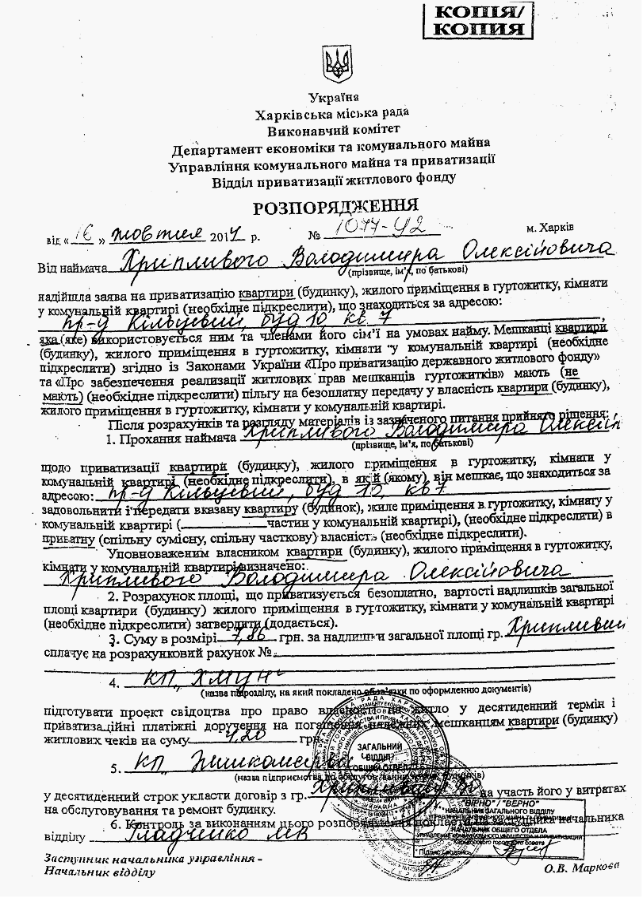 КОПІЯ/
КОПИЯ
Україна
Харківська міська рада
Виконавчий комітет
Департамент економіки та комунального майна
Управління комунального майна та приватизації
Відділ приватизації житлового фонду
РОЗПОРЯДЖЕННЯ
від « » жовтня 201 р. № 1077-У2 м. Харків
Від наймача Хрипливого Володимира Олексійовича
(прізвище, ім'я, по батькові)
надійшла заява на приватизацію квартири (будинку), жилого приміщення в гуртожитку, кімнати
у комунальній квартирі (необхідне підкреслити), що знаходиться за адресою:
пр-д Кільцевий, буд 10 кв. 7
яка (яке) використовується ним та членами його сім'ї на умовах найму. Мешканці квартири
(будинку), жилого приміщення в гуртожитку, кімнати у комунальній квартирі (необхідне
підкреслити) згідно із Законами України «Про приватизацію державного житлового фонду»
та «Про забезпечення реалізації житлових прав мешканців гуртожитків» мають (не
мають) (необхідне підкреслити) пільгу на безоплатну передачу у власність квартири (будинку),
жилого приміщення в гуртожитку, кімнати у комунальній квартирі.
Після розрахунків та розгляду матеріалів із зазначеного питання прийнято рішення:
1. Прохання наймача Хрипливого Володимира Олексій
(прізвище, ім'я, по батькові)
щодо приватизації квартири (будинку), жилого приміщення в гуртожитку, кімнати у
комунальній квартирі (необхідне підкреслити), в якій (якому), він мешкає, що знаходиться за
адресою: пр-д Кільцевий, буд 10, кв 7
задовольнити і передати вказану квартиру (будинок), жиле приміщення в гуртожитку, кімнату у
комунальній квартирі (________частин у комунальній квартирі), (необхідне підкреслити) в
приватну (спільну сумісну, спільну часткову) власність (необхідне підкреслити).
Уповноваженим власником квартири (будинку), жилого приміщення в гуртожитку,
кімнати у комунальній квартирі визначено:
Хрипливого Володимира Олексійовича
2. Розрахунок площі, що приватизується безоплатно, вартості надлишків загальної
площі квартири (будинку) жилого приміщення в гуртожитку, кімнати у комунальній квартирі
(необхідне підкреслити) затвердити (додається).
3. Суму в розмірі грн. за надлишки загальної площі гр. Хрипливий
сплачує на розрахунковий рахунок №
4. КП "ХМУН"
(назва підрозділу, на який покладено обов'язки по оформленню документів)
підготувати проект свідоцтва про право власності на житло у десятиденний термін і
приватизаційні платіжні доручення на погашення належних мешканцям квартири (будинку)
житлових чеків на суму 4,20 грн
5. КП "Жилкомсервіс"
(назва підприємства по обслуговуванню житлових будинків)
у десятиденний строк укласти договір з гр. на участь його у витратах
на обслуговування та ремонт будинку.
6. Контроль за виконанням цього розпорядження покласти на заступника начальника
відділу
ЗАГАЛЬНИЙ
ВІДДІЛ
ОБЩИЙ ОТДЕЛ
"ВІРНО" / "ВЕРНО"
НАЧАЛЬНИК ЗАГАЛЬНОГО ВІДДІЛУ
НАЧАЛЬНИК ОБЩЕГО ОТДЕЛА
Заступник начальника управління -
Начальник відділу О.В. Маркова